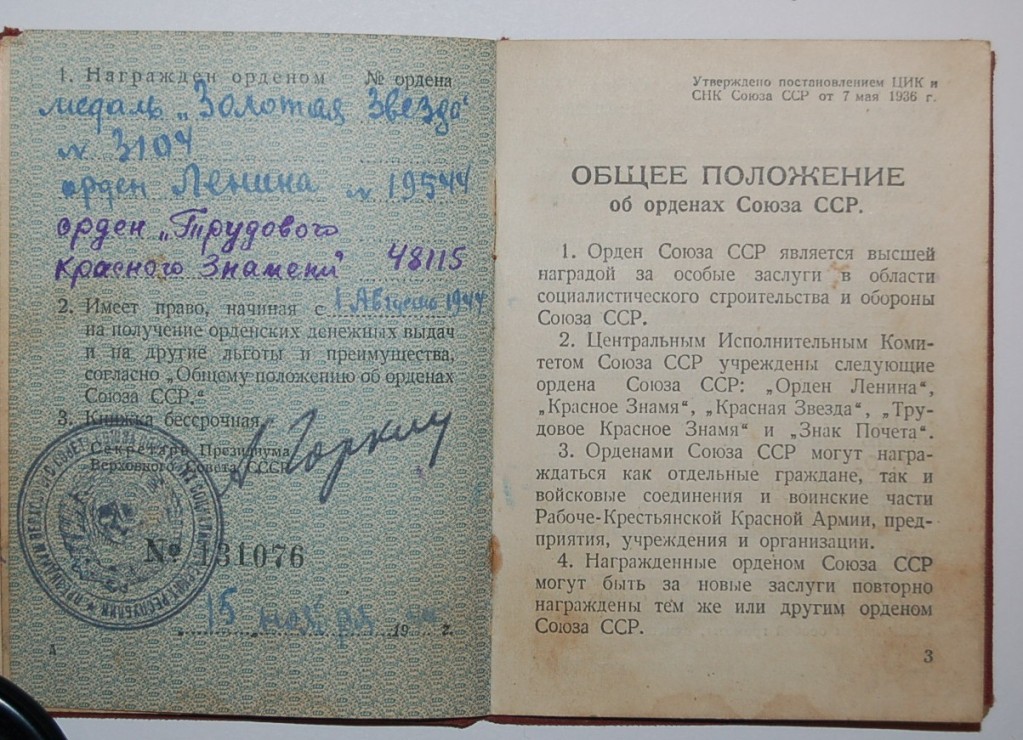 1. Награжден орденом № ордена
медаль „Золотая Звезда"
№ 3104
орден Ленина № 19544
орден „Трудового
Красного Знамени" 48115
2. Имеет право, начиная с 1 Августа 1944
на получение орденских денежных выдач
и на другие льготы и преимущества,
согласно „Общему положению об орденах
Союза ССР."
3. Книжка бессрочная.
Секретарь Президиума
Верховного Совета СССР
А Горкин
№ 131076
„15" ноября 19 г.
Утверждено постановлением ЦИК и
СНК Союза ССР от 7 мая 1936 г.
ОБЩЕЕ ПОЛОЖЕНИЕ
об орденах Союза ССР.
1. Орден Союза ССР является высшей
наградой за особые заслуги в области
социалистического строительства и обороны
Союза ССР.
2. Центральным Исполнительным Коми-
тетом Союза ССР учреждены следующие
ордена Союза ССР: „Орден Ленина",
„Красное Знамя", „Красная Звезда", „Тру-
довое Красное Знамя" и „Знак Почета".
3. Орденами Союза ССР могут награ-
ждаться как отдельные граждане, так и
войсковые соединения и воинские части
Рабоче-Крестьянской Красной Армии, пред-
приятия, учреждения и организации.
4. Награжденные орденом Союза ССР
могут быть за новые заслуги повторно
награждены тем же или другим орденом
Союза ССР.
3